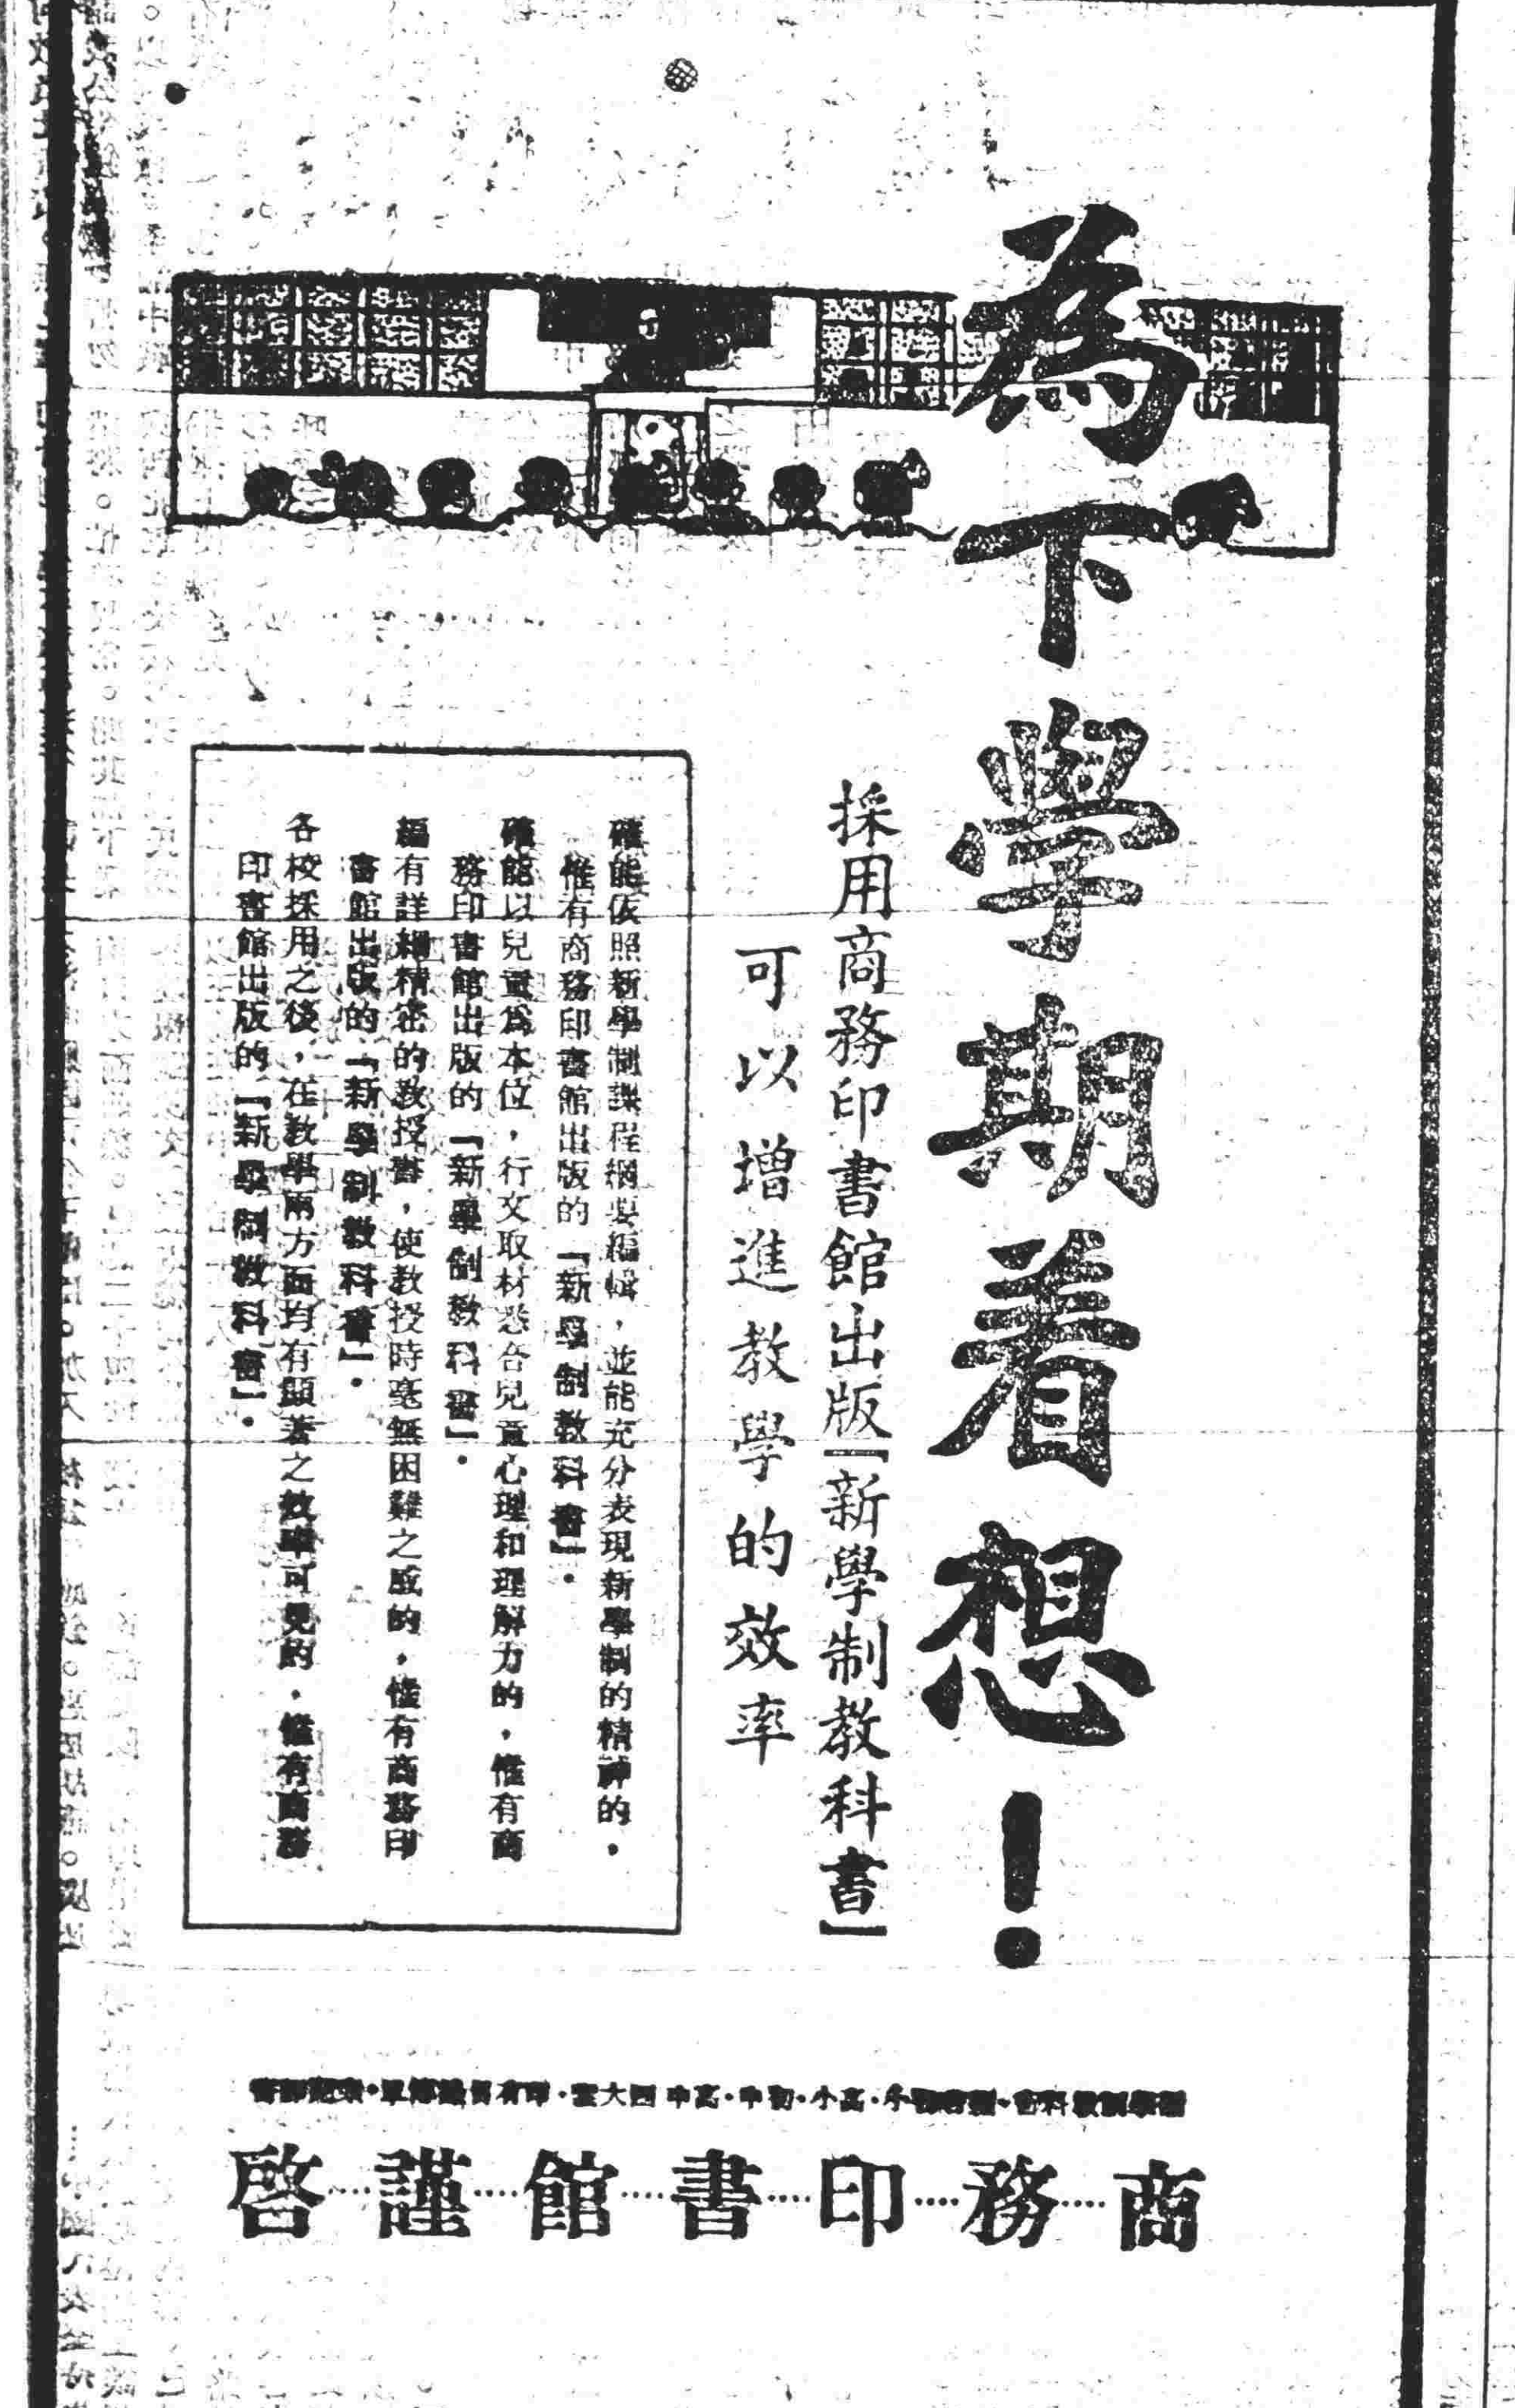 為下學期着想！
採用商務印書館出版「新學制教科書」
可以增進教學的效率
確能依照新學制課程綱要編輯，並能充分表現新學制的精神的，
惟有商務印書館出版的「新學制教科書」．
確能以兒童為本位，行文取材悉合兒童心理和理解力的，惟有商
務印書館出版的「新學制教科書」．
編有詳細精密的教授書，使教授時毫無困難之感的，惟有商務印
書館出版的「新學制教科書」．
各校採用之後，在教學兩方面均有顯著之效率可見的，惟有商務
印書館出版的「新學制教科書」．
新學制教科書・小・高小・初中・高中四大套・印有
商……務……印……書……館……謹……啓